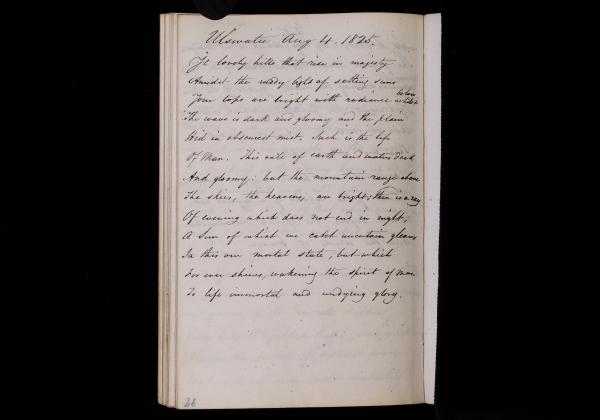 Ulswater Aug 4. 1825.
Ye lovely hills that rise in majesty
Amidst the ruddy light of setting suns
Your tops are bright with radiance while
below
The wave is dark and gloomy and the plain
Hid in obscurest mist. Such is the life
Of Man. This vale of earth and waters dark
And gloomy: but the mountain range above
The skies, the heavens, are bright; there is a ray
Of evening which does not end in night;
A Sun of which we catch uncertain gleams
In this our mortal state, but which
For ever shines, wakening the spirit of man
To life immortal and undying glory.
26